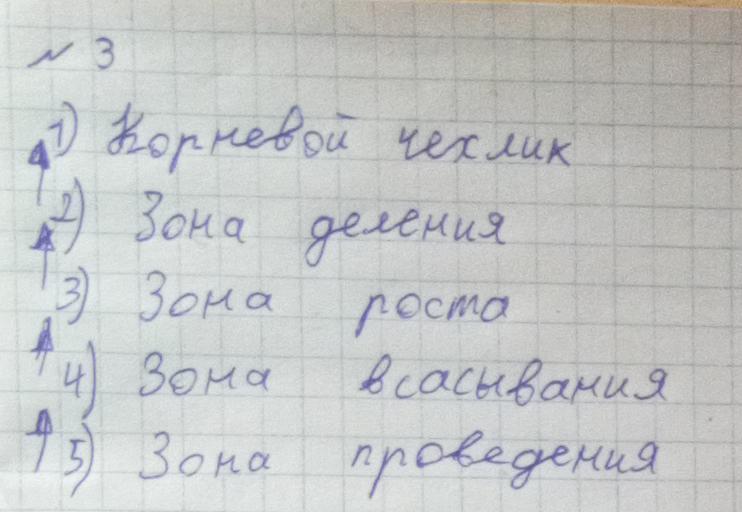 № 3
1) Корневой чехлик
2) Зона деления
3) Зона роста
4) Зона всасывания
5) Зона проведения